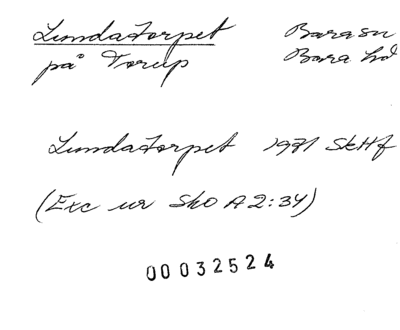 Lundatorpet Bara sn
på Torup Bara hd
Lundatorpet 1971 SkHf
(Exc ur SkO A2:34)
00032524